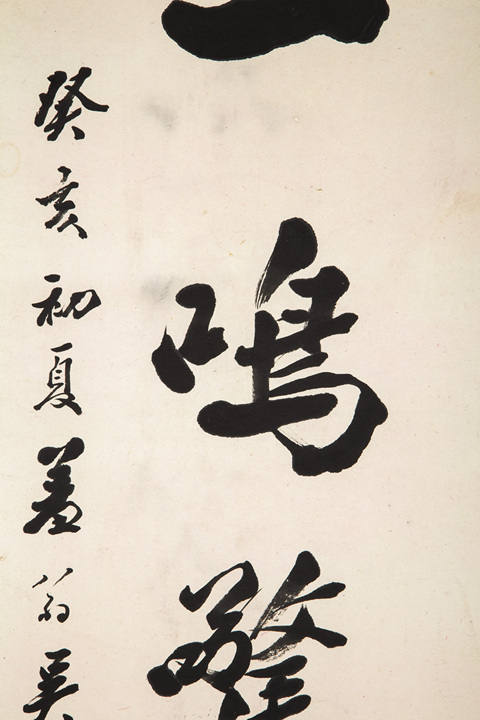 一鳴驚
癸亥初夏翁吳